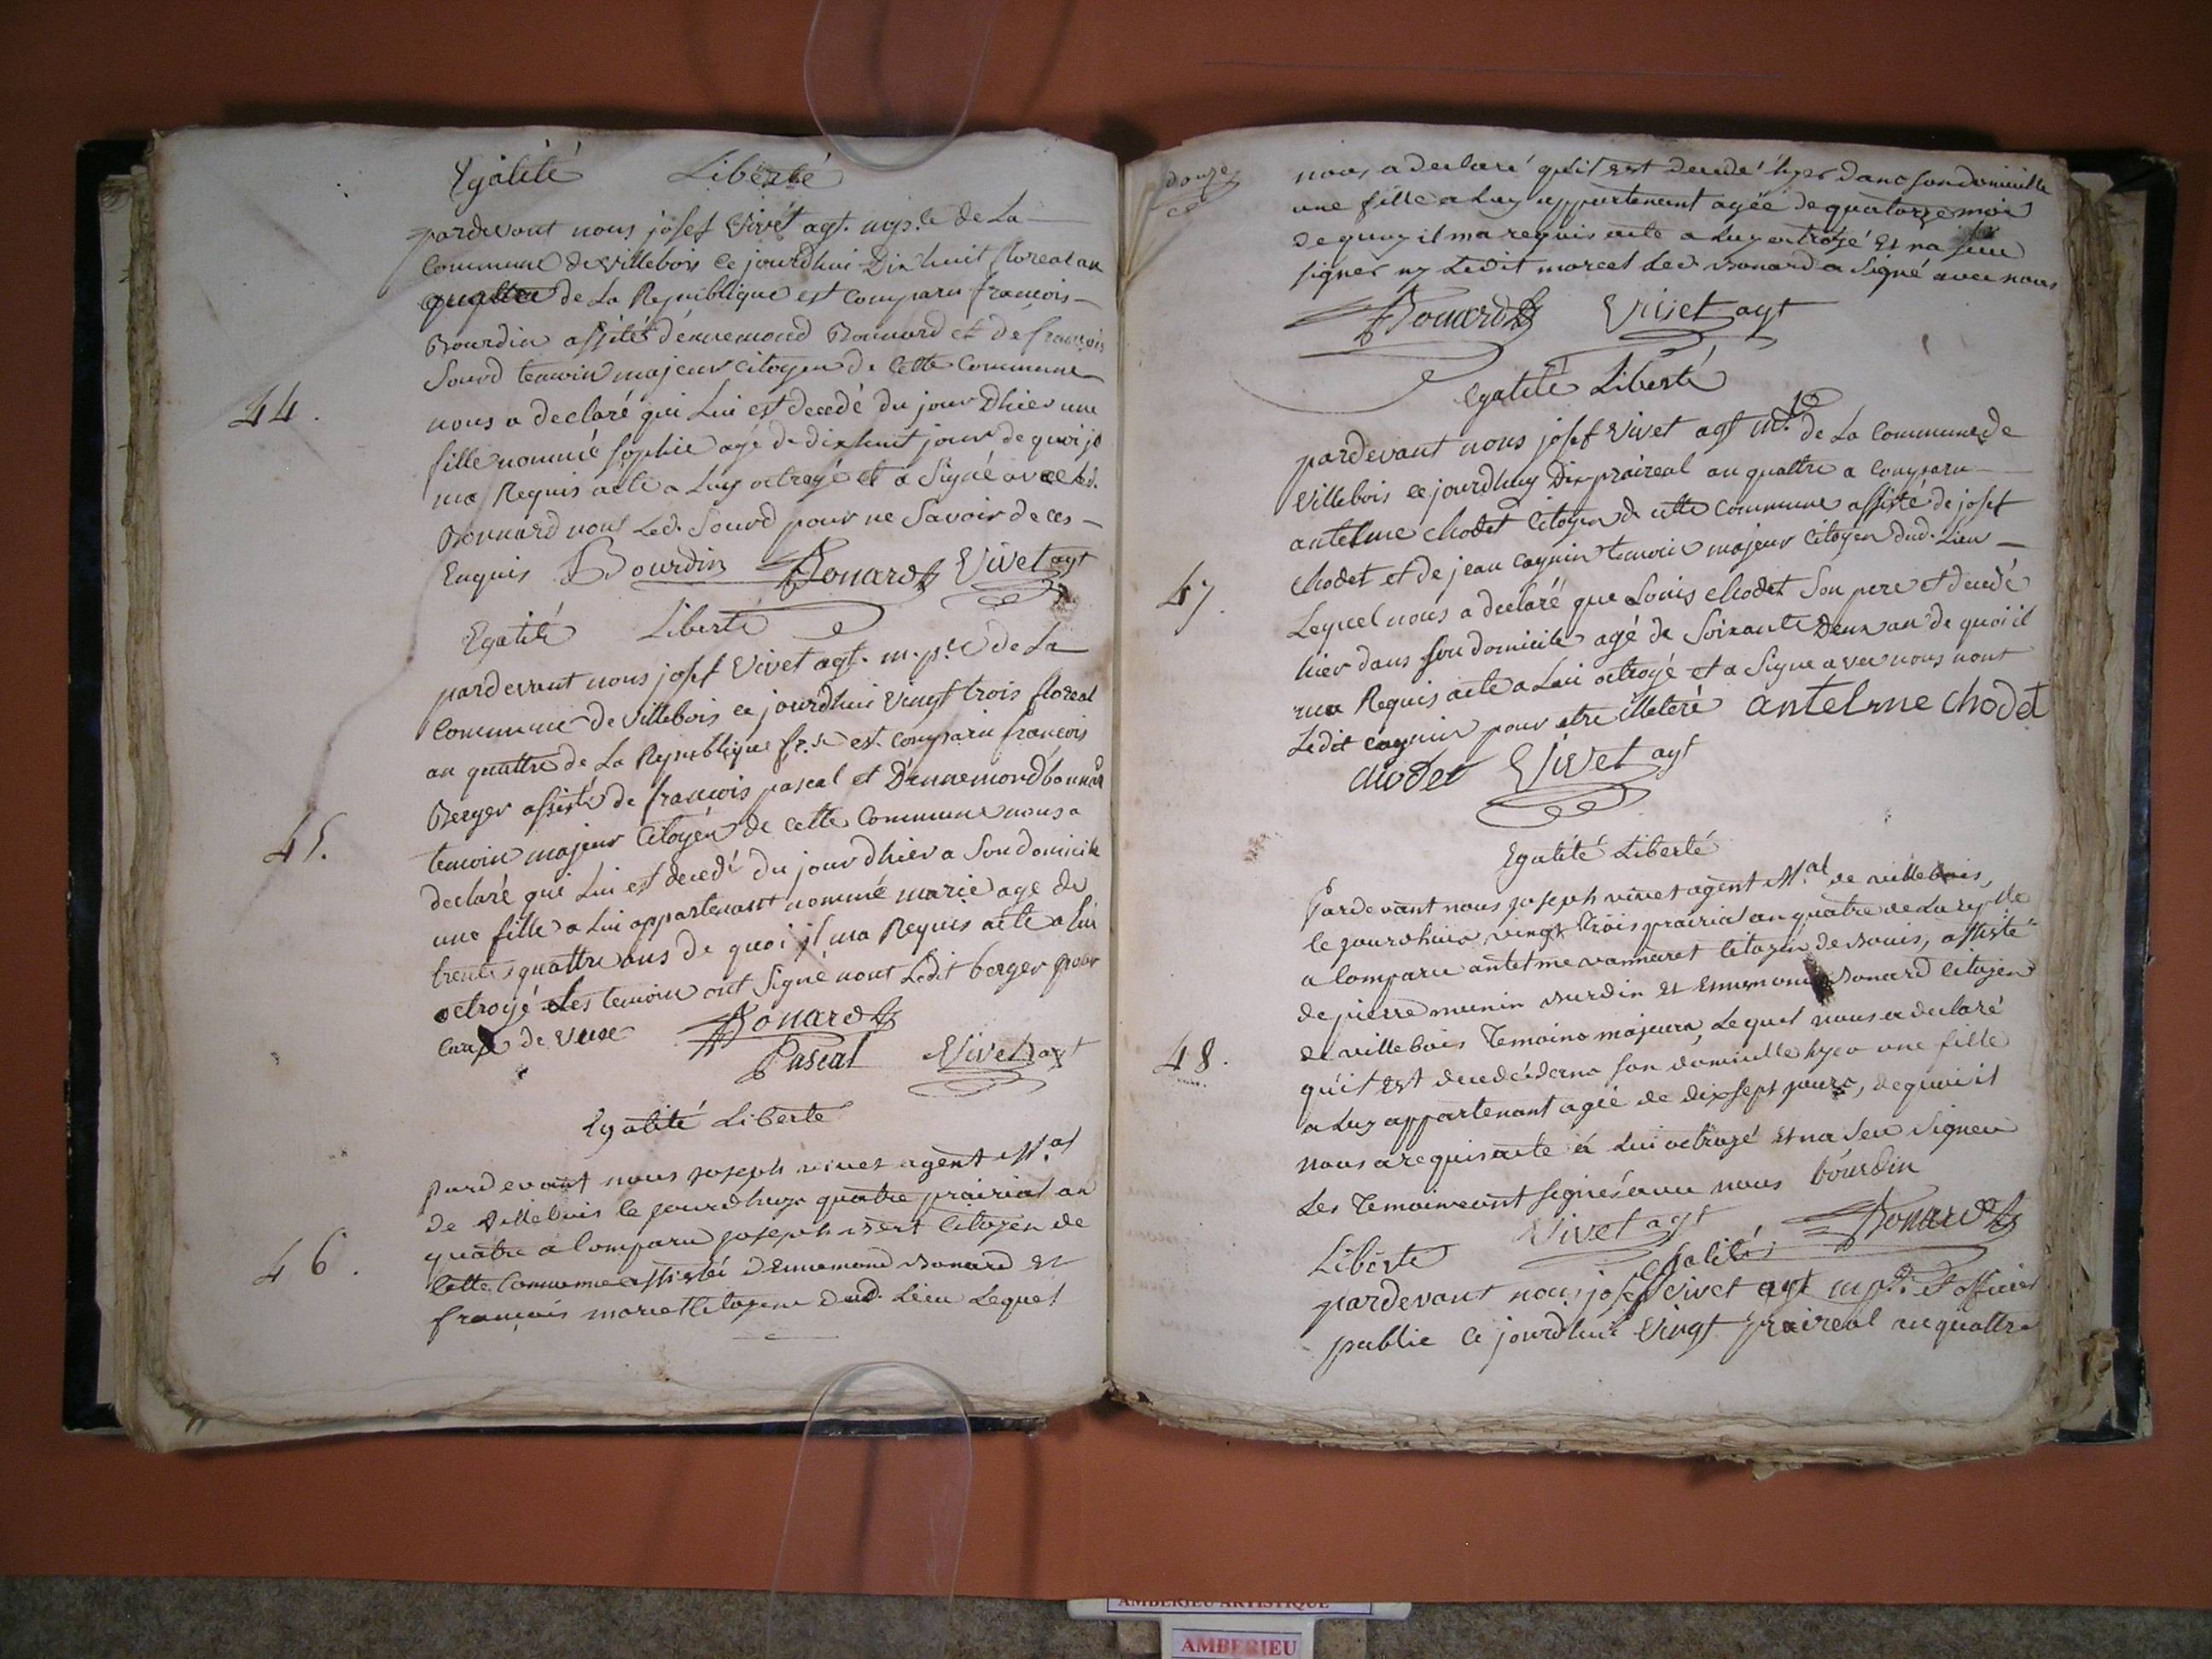 Egalité Liberté
pardevant nous josef Vivet agt. mp.le de La
Commune de villebois ce jourdhui Dix huit floreal an
quattre de La Republique est comparu francois
Bourdin assité dennemond Bonnard et de francois
Sourd temoin majeur Citoyen de Cette Commune
44.
nous a declaré qui Lui est decedé du jour Dhier une
fille nommé sophie agé de dixhuit jour de quoi je
ma Requis acte a Luy octroyé et a Signé avec Led.
Bonnard nous Led. Sourd pour ne Savoir de ces
Enquis Bourdin Bonard Vivet agt
Egalité Liberté
pardevant nous josef Vivet agt. m.p.le de La
Commune de villebois ce jourdhui Vingt trois floreal
an quattre de La Republique fr.se est comparu francois
Berger assisté de francois pascal et Dennemond bonnard
45.
temoin majeur Citoyen de cette Commune nous a
declaré qui Lui est decedé du jour dhier a Son domicile
une fille a Lui appartenant nommé marie age de
trente quattre ans de quoi jl ma Requis acte a lui
octroyé Les temoin ont Signé nont Ledit berger pour
cause de vuue Bonard
Pascal Vivet agt
Egalité Liberte
pardevant nous joseph vivet agent M.al
de Villebois le jourdhuy quatre prairial an
quatre a Comparu joseph vert Citoyen de
46.
Cette Commune assisté dEnnemond Bonard et
francois moriet Citoyens dud. Lieu Lequel
douze
nous a declaré quil est decedé hyer dans son domicille
une fille a Luy appartenant agée de quatorze mois
de quoy il ma requis acte a Luy octroyé Et na seu
signer ny Ledit morcel Led. Bonard a Signé avec nous
Bonard Vivet agt
Egalité Liberté
pardevant nous josef Vivet agt m.p de La Commune de
Villebois ce jourdhuy Dix praireal an quattre a Comparu
antelme chodet Citoyen de cette Commune assisté de josef
chodet et de jean cagnin temoin majeur Citoyen dud. Lieu
47.
Lequel nous a declaré que Louis chodet Son pere et decedé
hier dans son domicile agé de Soixante Deux an de quoi il
ma Requis acte a Lui octroyé et a Signe avec nous nont
Ledit cagnin pour etre illeteré antelme chodet
chodet Vivet agt
Egalité Liberté
Pardevant nous joseph vivet agent M.al de villebois,
le jourdhuis vingt trois prairial an quatre de La rep.lle
a Comparu antelme vannaret Citoyen de Bouis, assisté
de pierre munin Burdin et Ennemond Bonard Citoyen
48.
de villebois Temoins majeurs, Lequel nous a declaré
quil est decedé dans son domicille hyer une fille
a Luy appartenant agée de dixsept jours, de quoi il
nous a requis acte á Lui octroyé et na seu signer
Les Temoins ont signés avec nous bourdin
Vivet agt Bonard
Liberté Egalité
pardevant nous josef Vivet agt m.p. Et officier
public Ce jourdhui Vingt praireal an quattre
AMBERIEU ARTISTIQUE
AMBERIEU